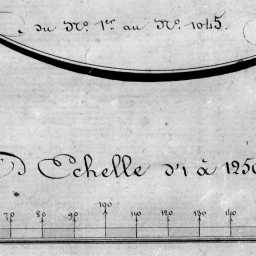 du N.° 1.er au N.° 1045.
Echelle d'1 à 1250
70 80 90 100 110 120 130 140